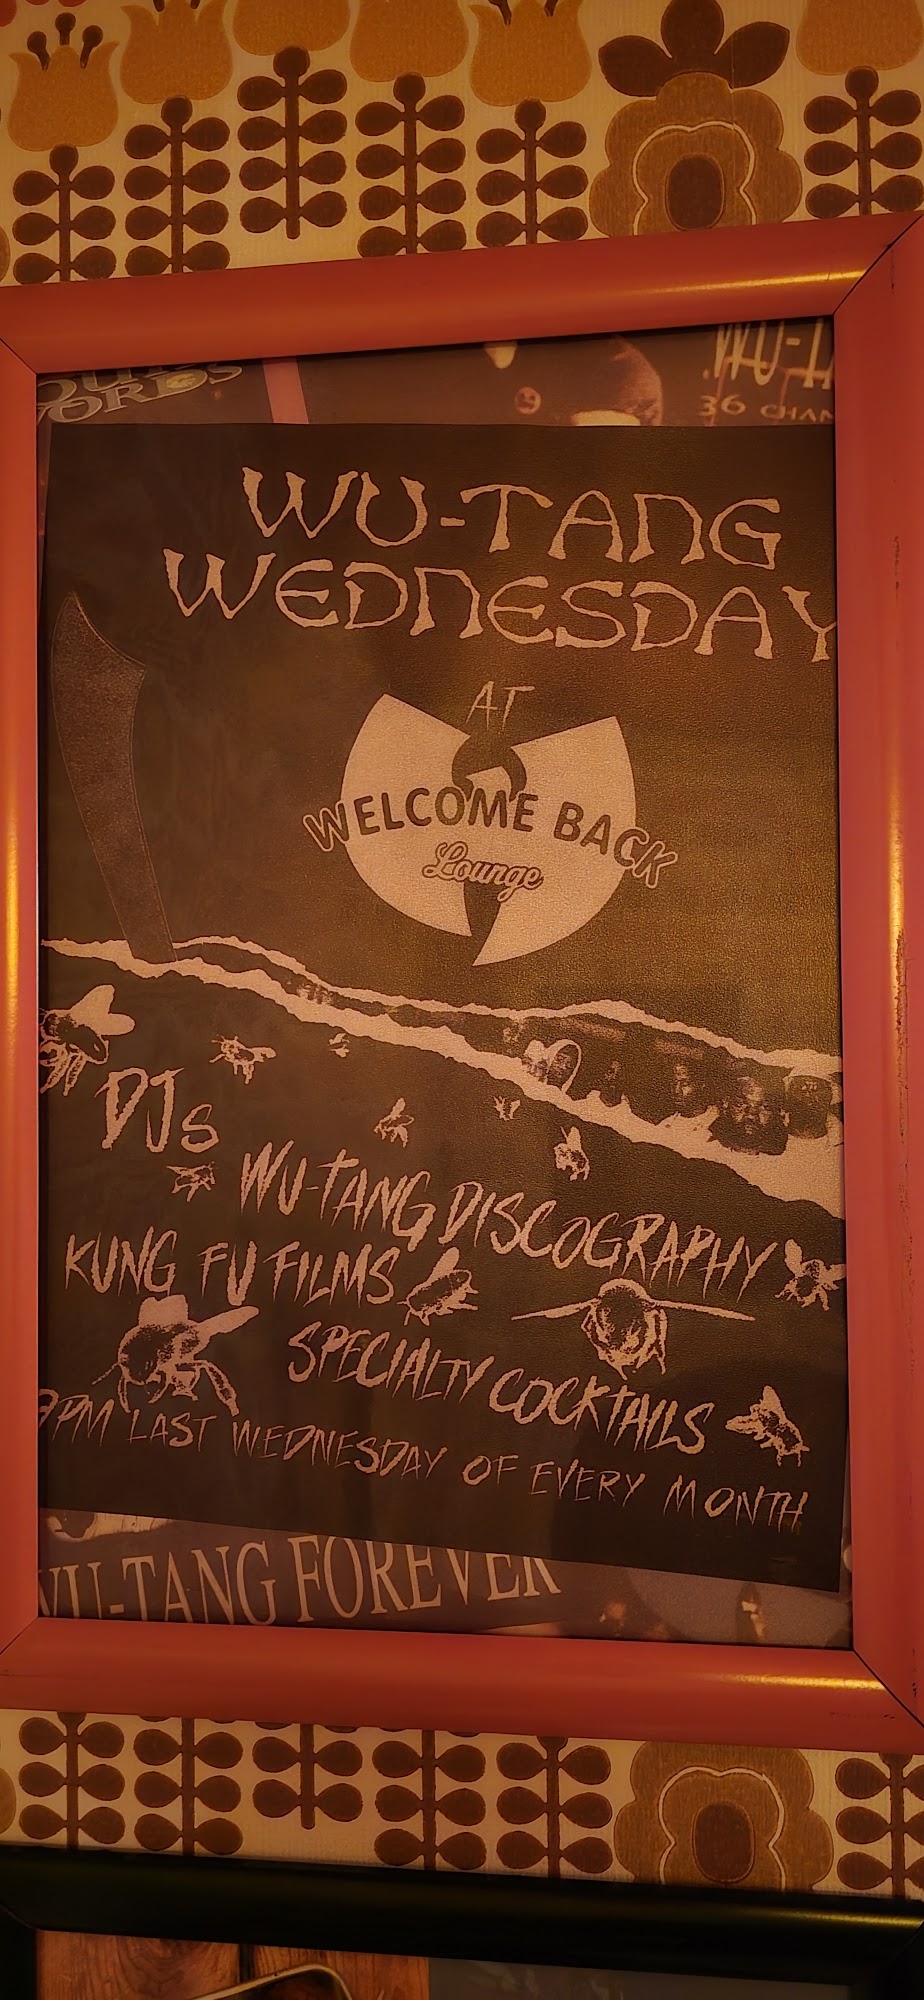 WU-T
36 CHAM
WU-TANG
WEDNESDAY
AT
WELCOME BACK
Lounge
DJs
WU-TANG DISCOGRAPHY
KUNG FU FILMS
SPECIALTY COCKTAILS
PM LAST WEDNESDAY OF EVERY MONTH
WU-TANG FOREVER